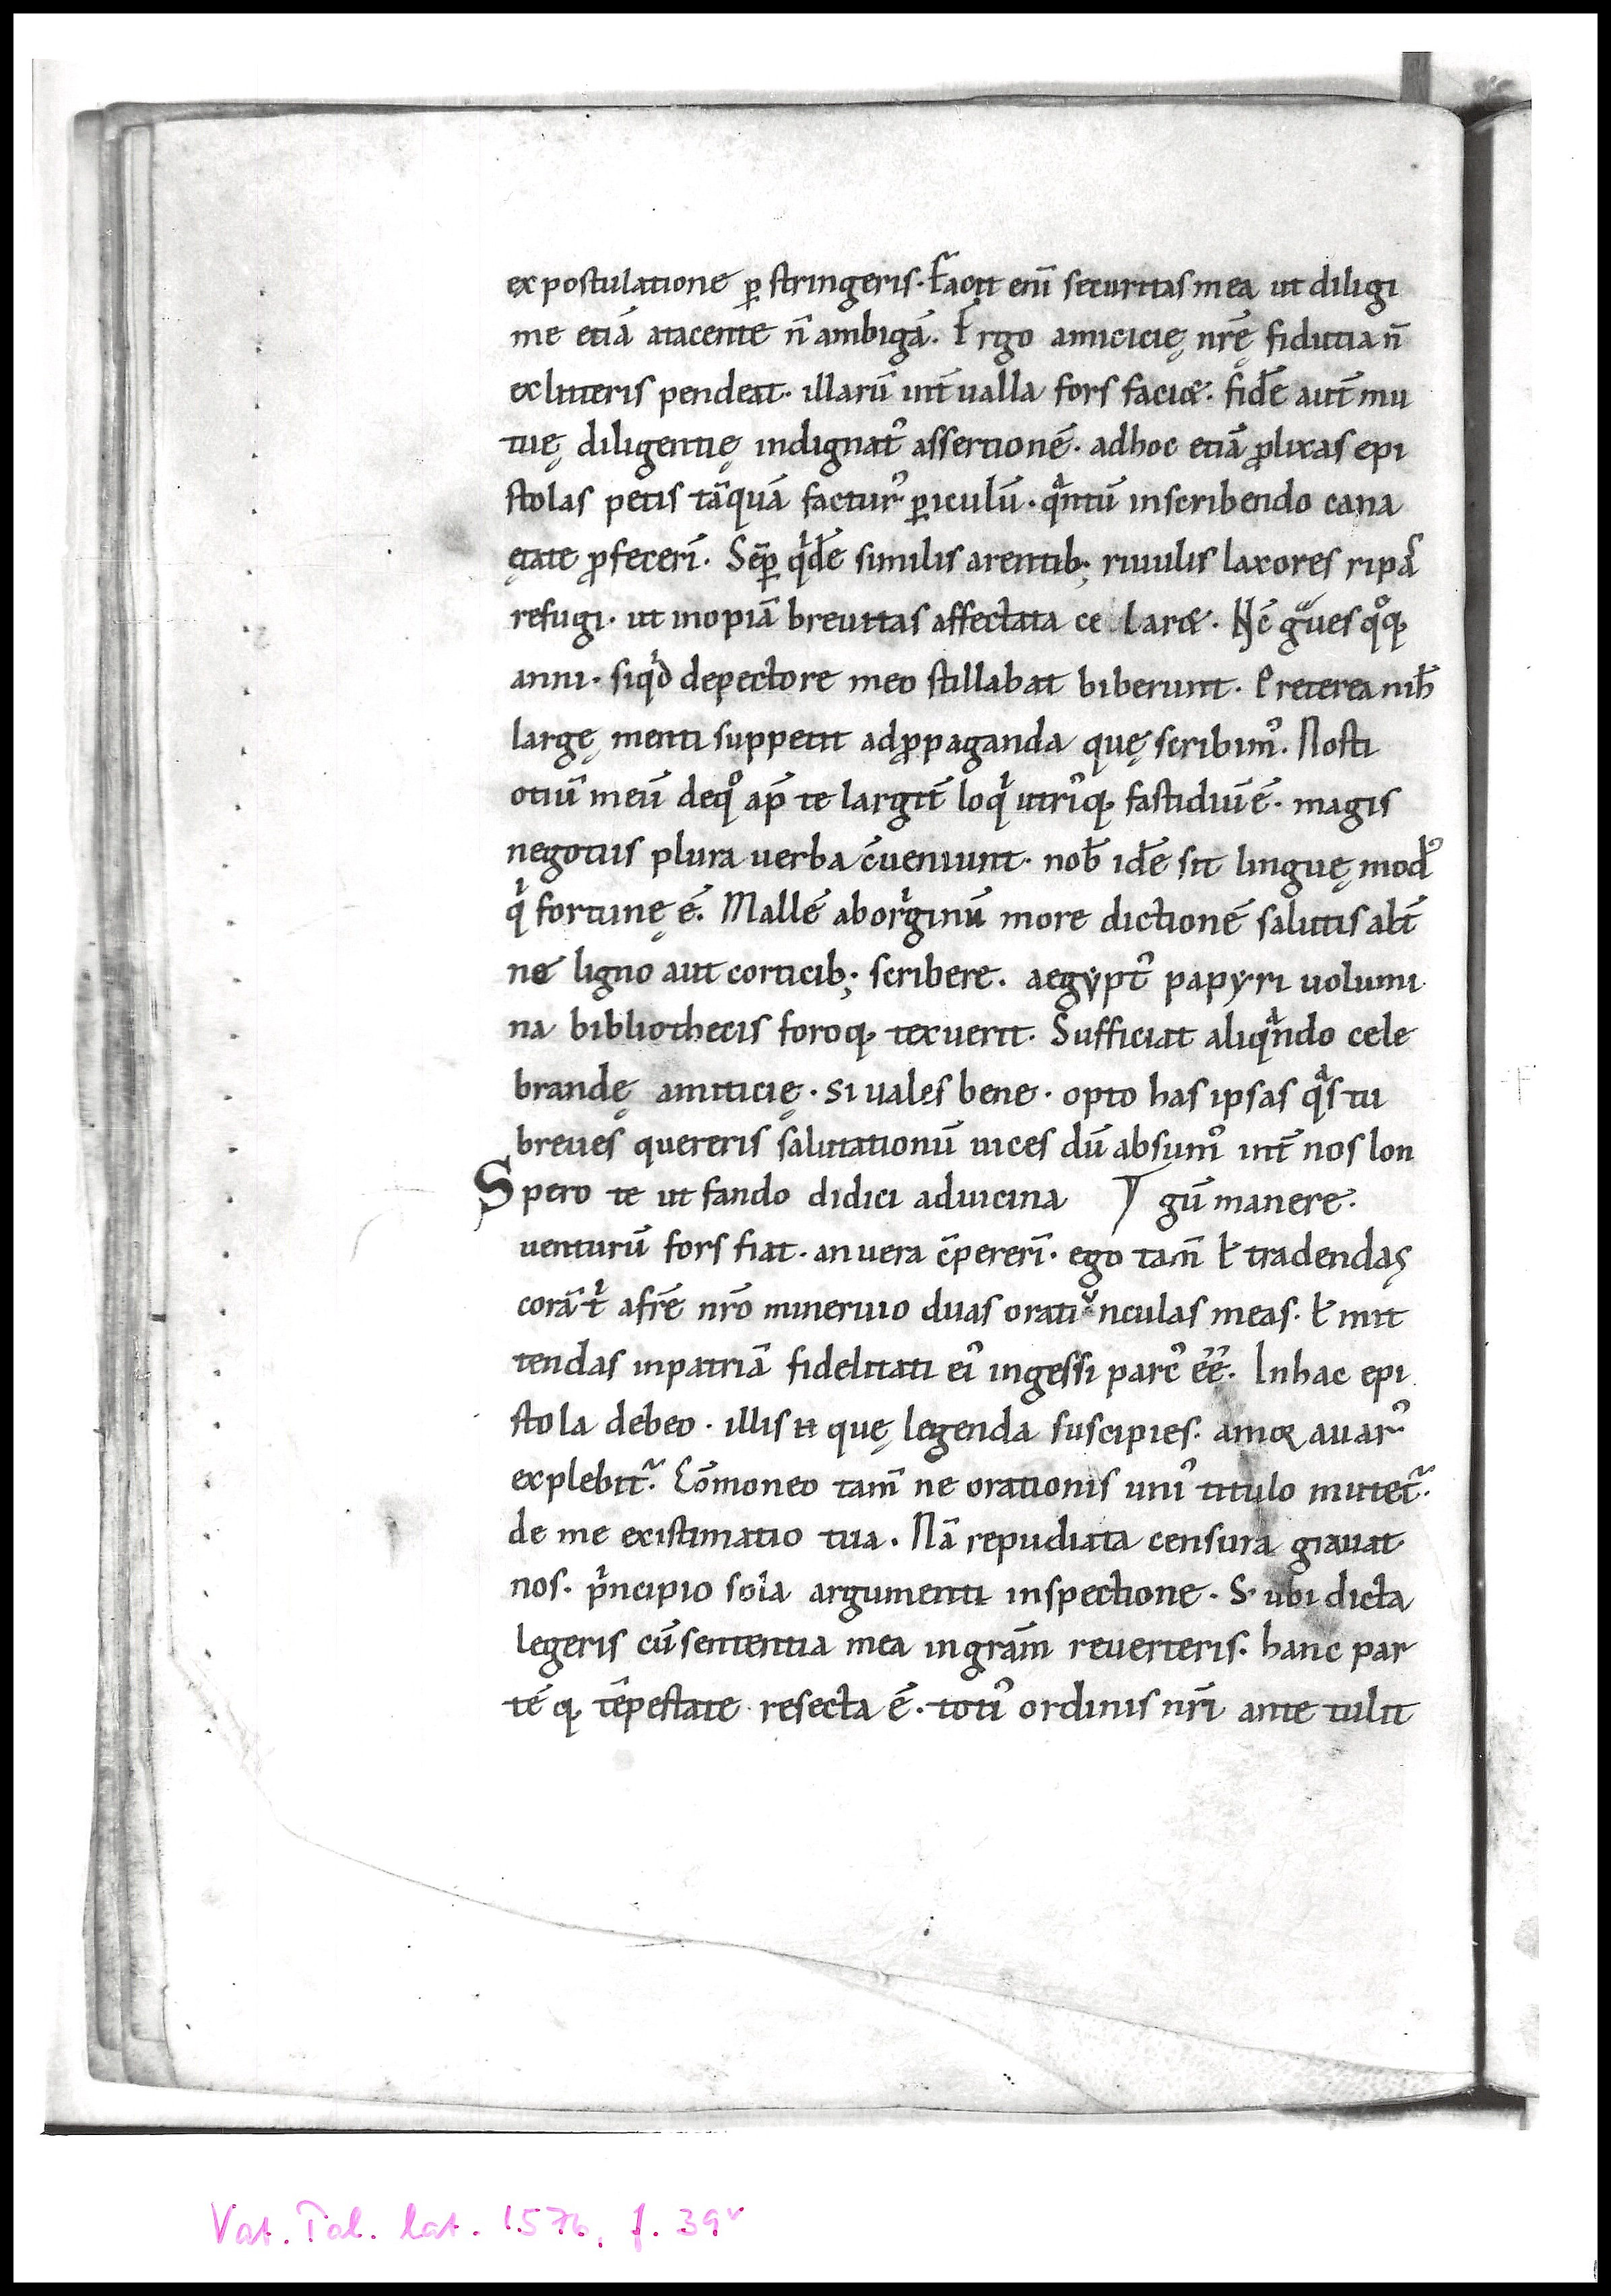 ex postulatione ꝑ stringeris. Facit eni᷑ securitas mea ut diligi
me etiā atacente n̄ ambigā. Ergo amicicię nr̄ę fidutia n̄
exlitteris pendeat. illarū int̄ualla fors faciæ. fidē aut̄ mu
tuę diligentię indignat᷒ assertionē. adhoc etiā ꝓlixas epi
stolas petis tāquā factur᷒ ꝑiculū. qͣntū inscribendo cana
ętate ꝓfecerī. Sēꝑ qͥdē similis arentib; riuulis laxores ripā
refugi. ut inopiā breuitas affectata ce laræ. Nc̄ gͣues qͦq;
anni. siqͥd depectore meo stillabat biberunt. Preterea nih̄
largę menti suppetit adꝓpaganda quę scribim᷒. Nosti
otiū meū deqͦ ap̄ te largit̄ loqͥ utriq; fastidiū ē. magis
negotiis plura uerba c̄ueniunt. nob̄ idē sit linguę mod᷒
qͥ fortunę ē. Mallē aborͥginū more dictionē salutis alt̄
næ ligno aut corticib; scribere. aegypt᷒ papyri uolumi
na bibliothecis foroq; texuerit. Sufficiat aliqͣndo cele
brandę amiticię. si uales bene. opto has ipsas qͣs tu
breues quereris salutationū uices dū absum᷒ int̄ nos lon
Spero te ut fando didici aduicina gū manere.
uenturū fors fiat. an uera c̄pererī. ego tam̄ ł tradendas
corāt͛ afrē nr̄o mineruio duas oratiuͮnculas meas. ł mit
tendas inpatriā fidelitati ei᷒ ingessi parc᷒ ēē. Inhac epi
stola debeo. illis n̄ quę legenda suscipies. amor auar᷒
explebit᷑. Cōmoneo tam̄ ne orationis uni᷒ titulo mutet᷑.
de me existimatio tua. Nā repudiata censura grauat
nos. pͥncipio sola argumenti inspectione. S; ubi dicta
legeris cū sententia mea ingrām reuerteris. hanc par
tē q; tēpestate resecta ē. toti᷒ ordinis nr̄i ante tulit
Vat. Pal. lat. 1576, f. 39v